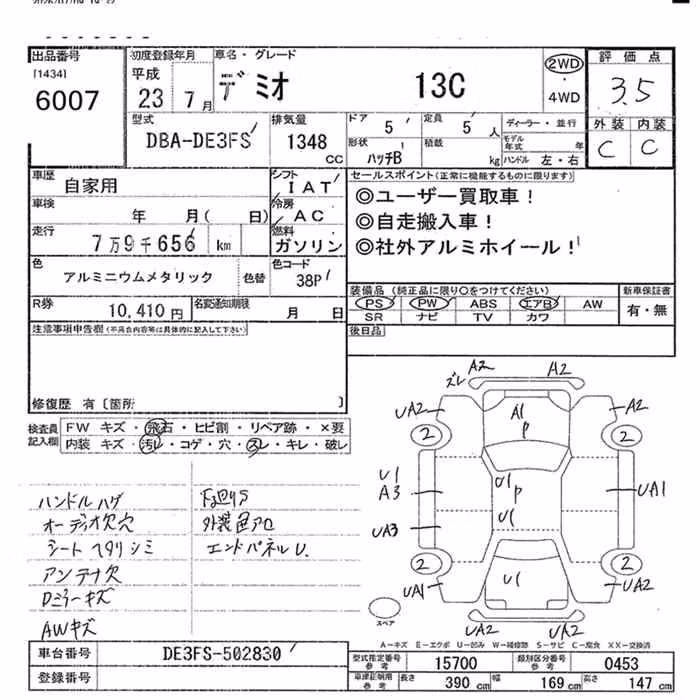 出品番号
[1434]
6007
初度登録年月
平成
23 7月
車名・グレード
デミオ 13C
2WD
・
4WD
評価点
3.5
外装 内装
C C
型式
DBA-DE3FS
排気量
1348
CC
ドア
5
定員
5 人
ディーラー・並行
形状
ハッチB
積載
kg
モデル年式 年
ハンドル 左・右
車歴
自家用
シフト
IAT
車検
年 月( 日)
冷房
AC
走行
7万9千656 km
燃料
ガソリン
色
アルミニウムメタリック
色替
色コード
38P
R券
10,410 円
名変通知期限
月 日
セールスポイント(正常に機能するものに限ります)
◎ユーザー買取車!
◎自走搬入車!
◎社外アルミホイール!
装備品(純正品に限り○をつけてください)
PS PW ABS エアB AW
SR ナビ TV カワ
新車保証書
有・無
後日品
注意事項申告欄(不具合内容等は具体的に記入して下さい)
修復歴 有〔箇所 〕
検査員
記入欄
FW キズ・飛石・ヒビ割・リペア跡・×要
内装 キズ・汚レ・コゲ・穴・スレ・キレ・破レ
ハンドルハゲ
オーディオ欠穴
シートヘタリシミ
アンテナ欠
Dミラーキズ
AWキズ
下回りS
外装色アセ
エンドパネルU.
ズレ A2 A2
UA2 A1 A2
P
2 2
U1 U1
A3 P UA1
U1
UA3
2 2
UA1 U1 UA2
スペア
UA2 UA2
A−キズ E−エクボ U−凹み W−補修跡 S−サビ C−腐食 XX−交換済
車台番号
DE3FS-502830
登録番号
型式指定番号
参考
15700
類別区分番号
参考
0453
車課正期用
参考
長さ
390 cm
幅
169 cm
高さ
147 cm